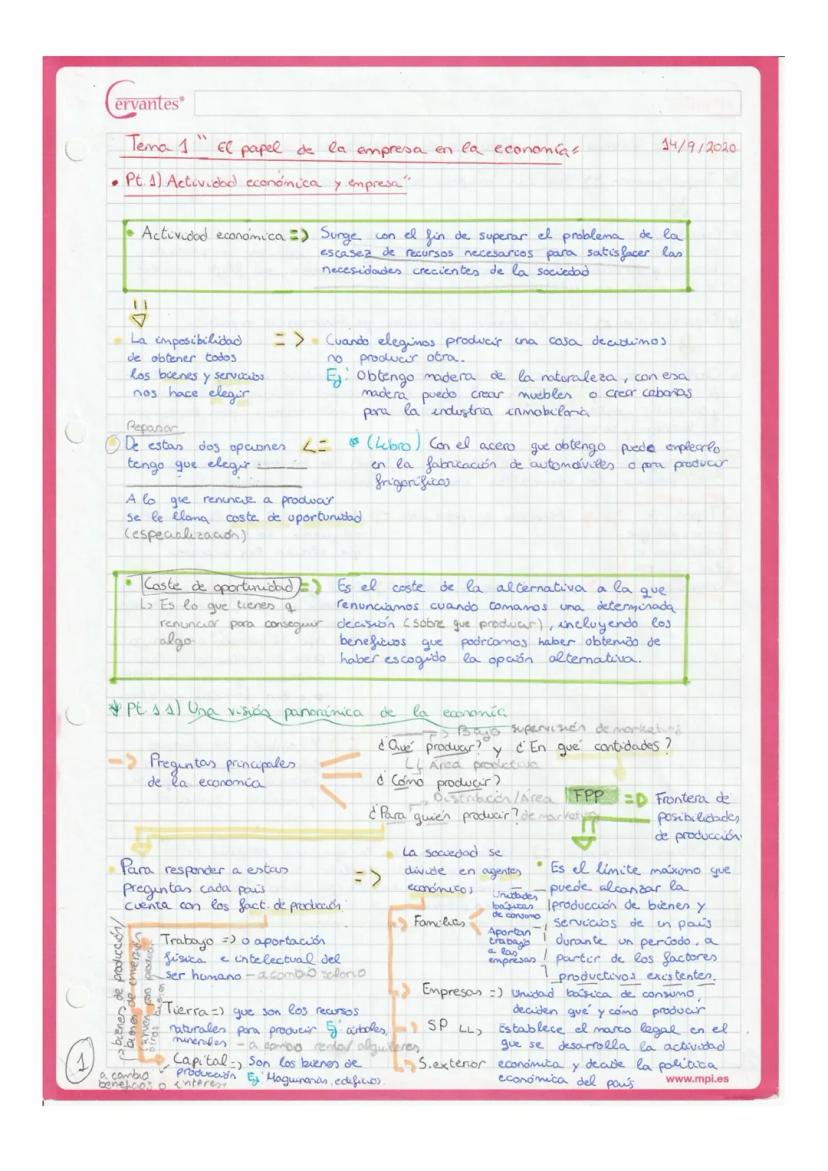 Cervantes®
Tema 1 " El papel de la empresa en la economía = 14/9/2020
• Pt. 1) Actividad económica y empresa"
• Actividad económica => Surge con el fin de superar el problema de la
escasez de recursos necesarios para satisfacer las
necesidades crecientes de la sociedad
La imposibilidad
de obtener todos
los bienes y servicios
nos hace elegir
=> Cuando elegimos producir una cosa decidimos
no producir otra.
Ej: Obtengo madera de la naturaleza, con esa
madera puedo crear muebles o crear cabañas
para la industria inmobiliaria
Repasar
De estas dos opciones <=
tengo que elegir
(Libro) Con el acero que obtengo puedo emplearlo
en la fabricación de automóviles o para producir
frigoríficos
A lo que renuncie a producir
se le llama coste de oportunidad
(especialización)
• Coste de oportunidad =>
↳ Es lo que tienes q
renunciar para conseguir
algo.
Es el coste de la alternativa a la que
renunciamos cuando tomamos una determinada
decisión (sobre que producir), incluyendo los
beneficios que podríamos haber obtenido de
haber escogido la opción alternativa.
Pt 1 1) Una visión panorámica de la economía
-> Preguntas principales
de la economía
Bajo supervisión de marketing
¿Qué producir? y ¿En qué cantidades?
↳ Área productiva
¿Cómo producir?
Distribución/Área
¿Para quién producir? de marketing
FPP => Frontera de
posibilidades
de producción
• Para responder a estas
preguntas cada país
cuenta con los fact. de producción.
=>
La sociedad se
divide en agentes
económicos
• Es el límite máximo que
puede alcanzar la
producción de bienes y
servicios de un país
durante un período, a
partir de los factores
productivos existentes.
bienes de producción/
bienes de inversión
sirven para producir
otros bienes
Trabajo => o aportación
física e intelectual del
ser humano - a cambio salario
Tierra => que son los recursos
naturales para producir Ej árboles,
minerales - a cambio rentas/alquileres
Capital => Son los bienes de
producción Ej: Maquinarias, edificios.
a cambio
beneficios o interés
-> Familias
Unidades
básicas
de consumo
Aportan
trabajo
a las
empresas
-> Empresas => Unidad básica de consumo,
deciden qué y cómo producir
-> SP ↳ Establece el marco legal en el
que se desarrolla la actividad
económica y decide la política
económica del país
-> S.exterior
1
www.mpi.es